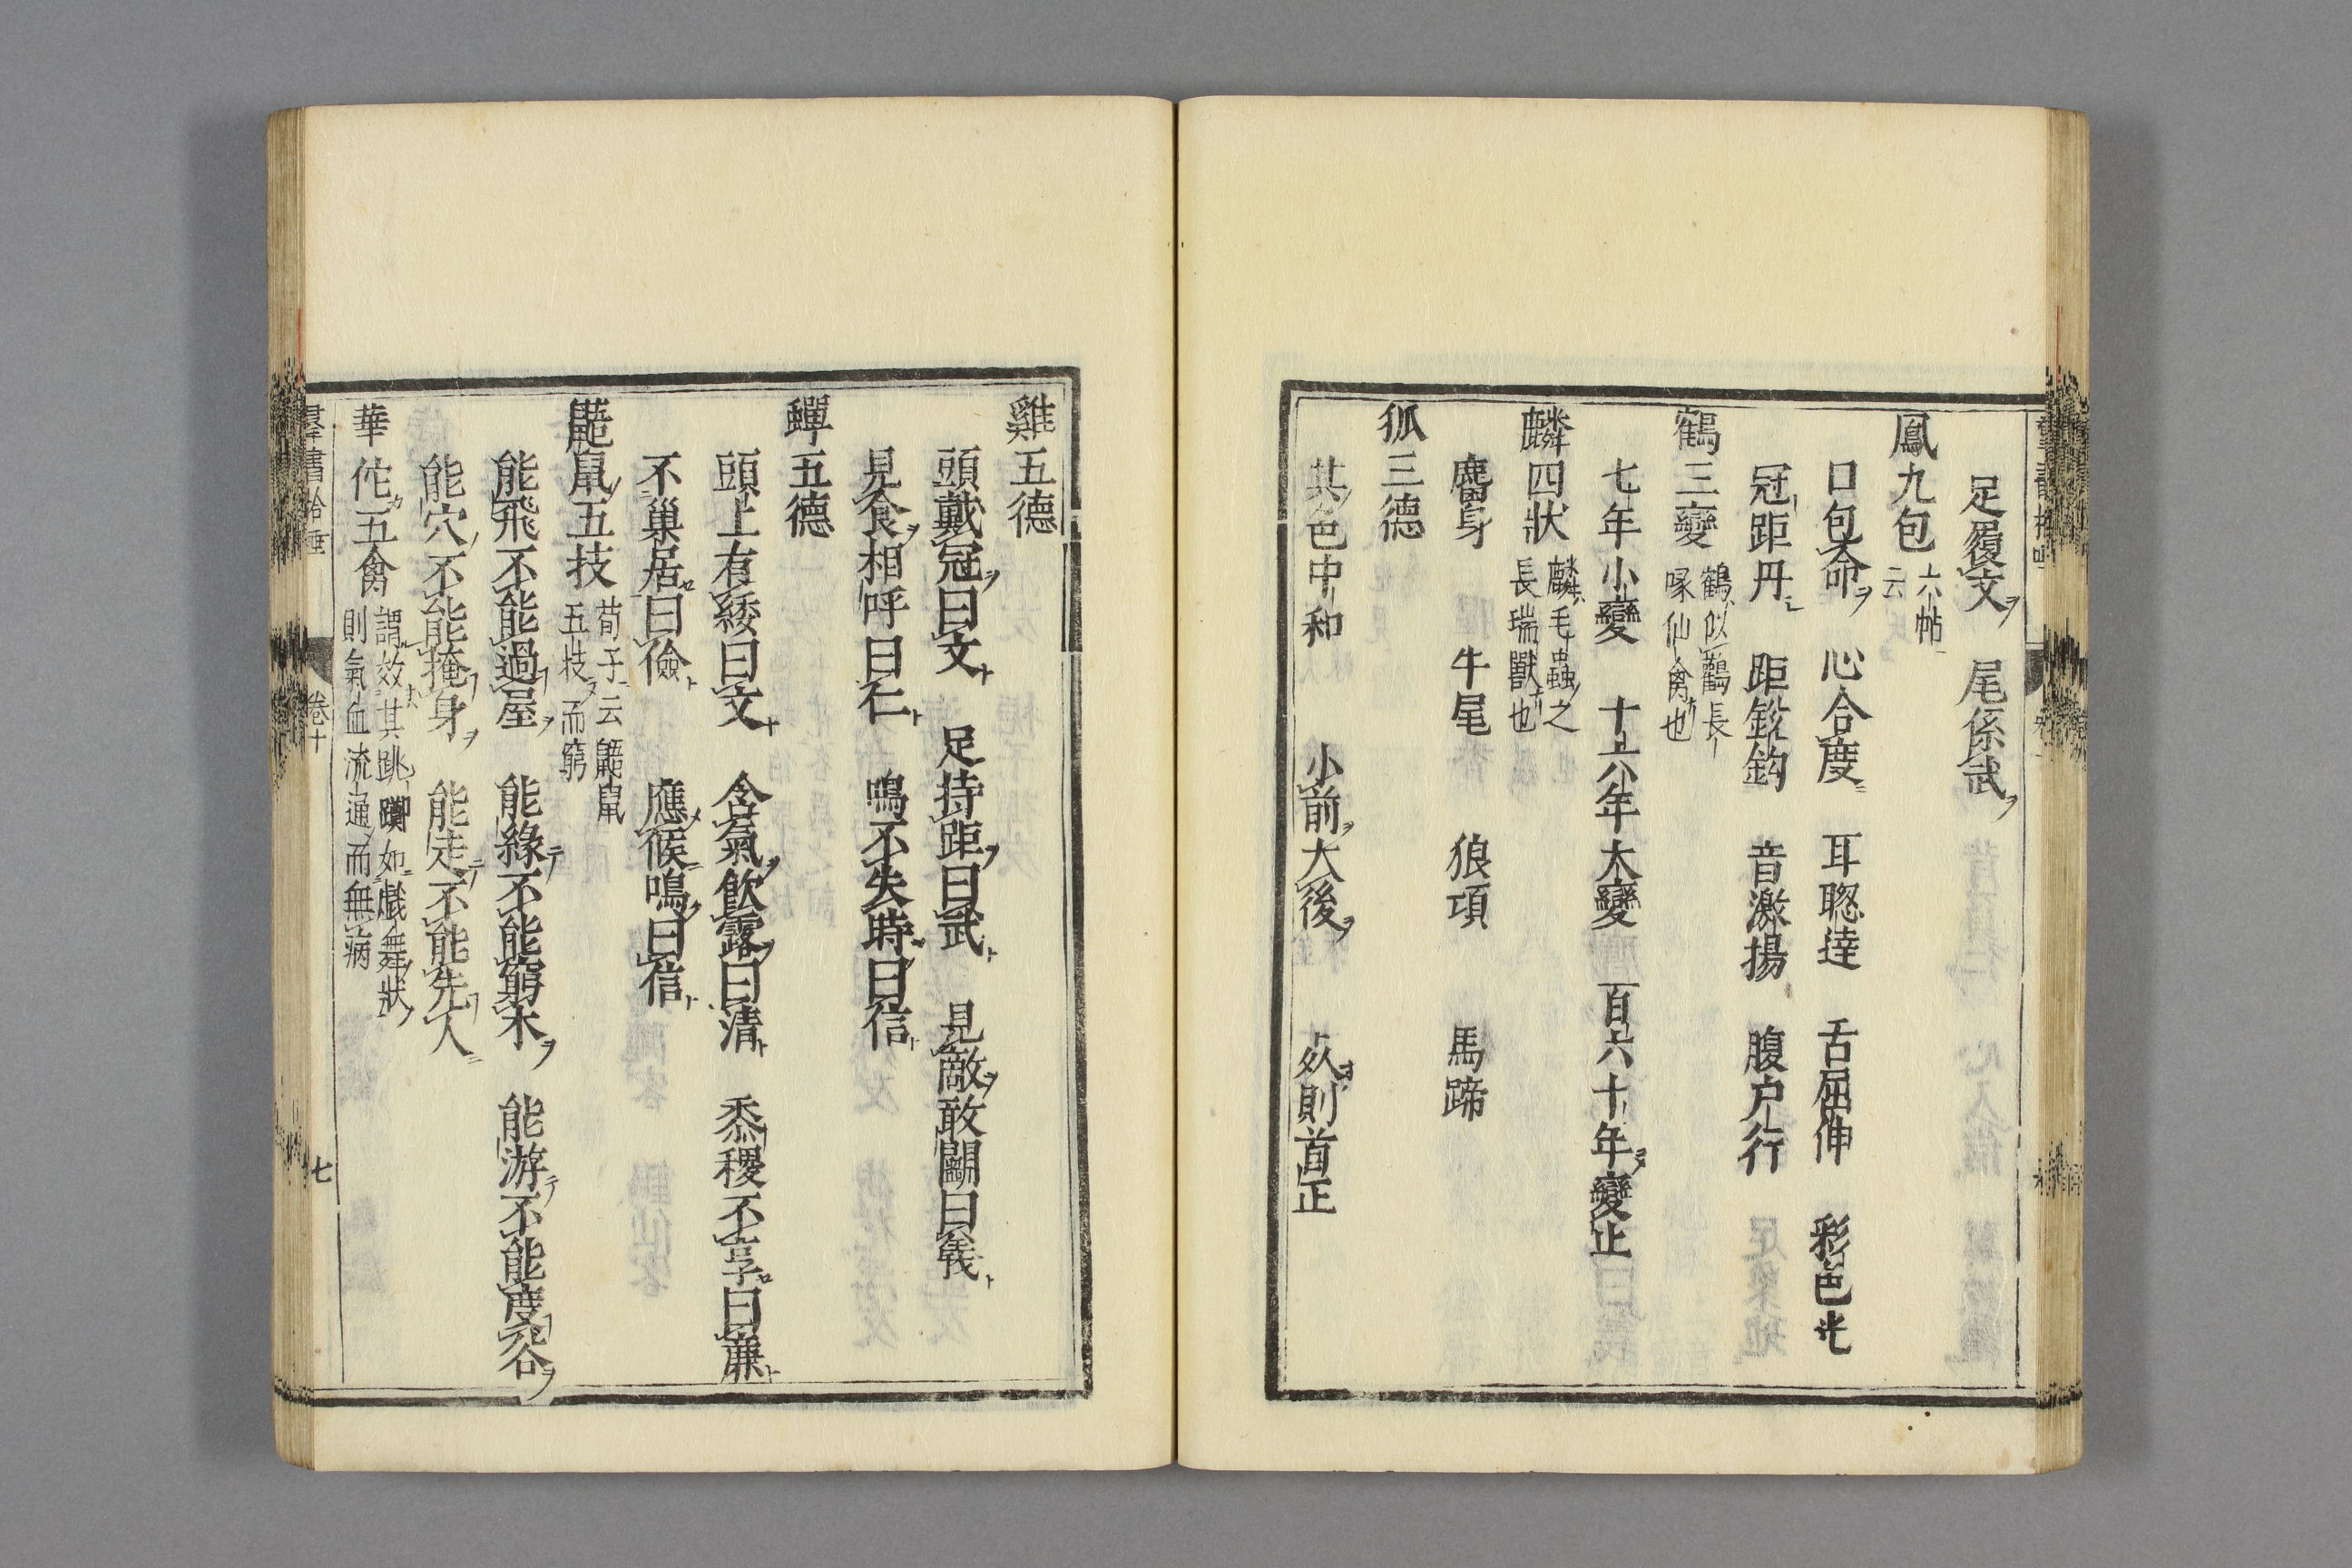 足履文ヲ　尾係武ヲ
鳳九包　六帖
云
口包命ヲ　心合度ニ　耳聡達　舌屈伸　彩色光
冠距丹ニ　距鋭鈎　音激揚　腹户行
鶴三變　鶴似鸛長
喙仙禽也
七年小變　十六年大變　百六十年變止
麟四狀　麟毛蟲之
長瑞獸也
麕身　牛尾　狼項　馬蹄
狐三德
其色中和　小前ヲ大後ヲ　則首正
雞五德
頭戴冠ヲ曰文ト　足持距ヲ曰武ト　見敵ヲ敢鬪曰義ト
見食ヲ相呼曰仁ト　鳴不失時ヲ曰信ト
蟬五德
頭上有緌曰文ト　含氣ヲ飲露ヲ曰清ト　黍稷不享曰廉ト
不巢居曰儉ト　應候ニ鳴曰信ト
鼯鼠五技　荀子云鼯鼠
五技ヲ而窮
能飛不能過屋ヲ　能緣テ不能窮木ヲ　能游テ不能度谷ヲ
能穴ノ不能掩身ヲ　能走テ不能先人ニ
華佗五禽　謂效其跳躑如戲舞狀ヲ
則氣血流通而無病
羣書拾唾　卷十　七